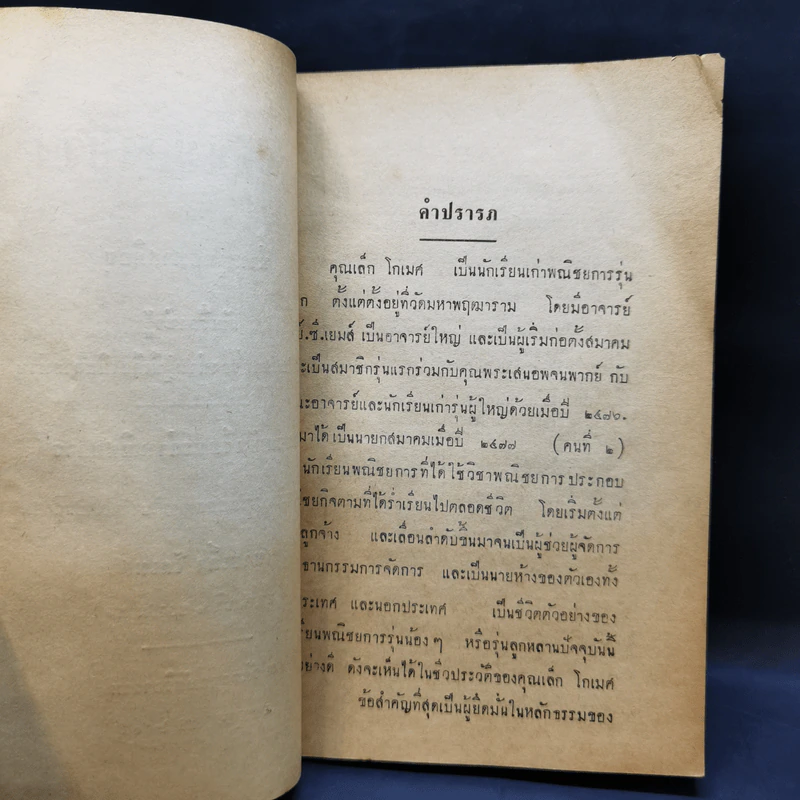 คำปรารภ
คุณเล็ก โกเมศ เป็นนักเรียนเก่าพณิชยการรุ่น
ตั้งแต่ตั้งอยู่ที่วัดมหาพฤฒาราม โดยมีอาจารย์
.ซี.เยมส์ เป็นอาจารย์ใหญ่ และเป็นผู้เริ่มก่อตั้งสมาคม
เป็นสมาชิกรุ่นแรกร่วมกับคุณพระเสนอพจนพากย์ กับ
อาจารย์และนักเรียนเก่ารุ่นผู้ใหญ่ด้วยเมื่อปี
มาได้เป็นนายกสมาคมเมื่อปี ๒๔๗๗ (คนที่ ๒)
นักเรียนพณิชยการที่ได้ใช้วิชาพณิชยการประกอบ
ชยกิจตามที่ได้ร่ำเรียนไปตลอดชีวิต โดยเริ่มตั้งแต่
ลูกจ้าง และเลื่อนลำดับขึ้นมาจนเป็นผู้ช่วยผู้จัดการ
ธานกรรมการจัดการ และเป็นนายห้างของตัวเองทั้ง
ระเทศ และนอกประเทศ เป็นชีวิตตัวอย่างของ
รียนพณิชยการรุ่นน้องๆ หรือรุ่นลูกหลานปัจจุบันนี้
อย่างดี ดังจะเห็นได้ในชีวประวัติของคุณเล็ก โกเมศ
ข้อสำคัญที่สุดเป็นผู้ยึดมั่นในหลักธรรมของ